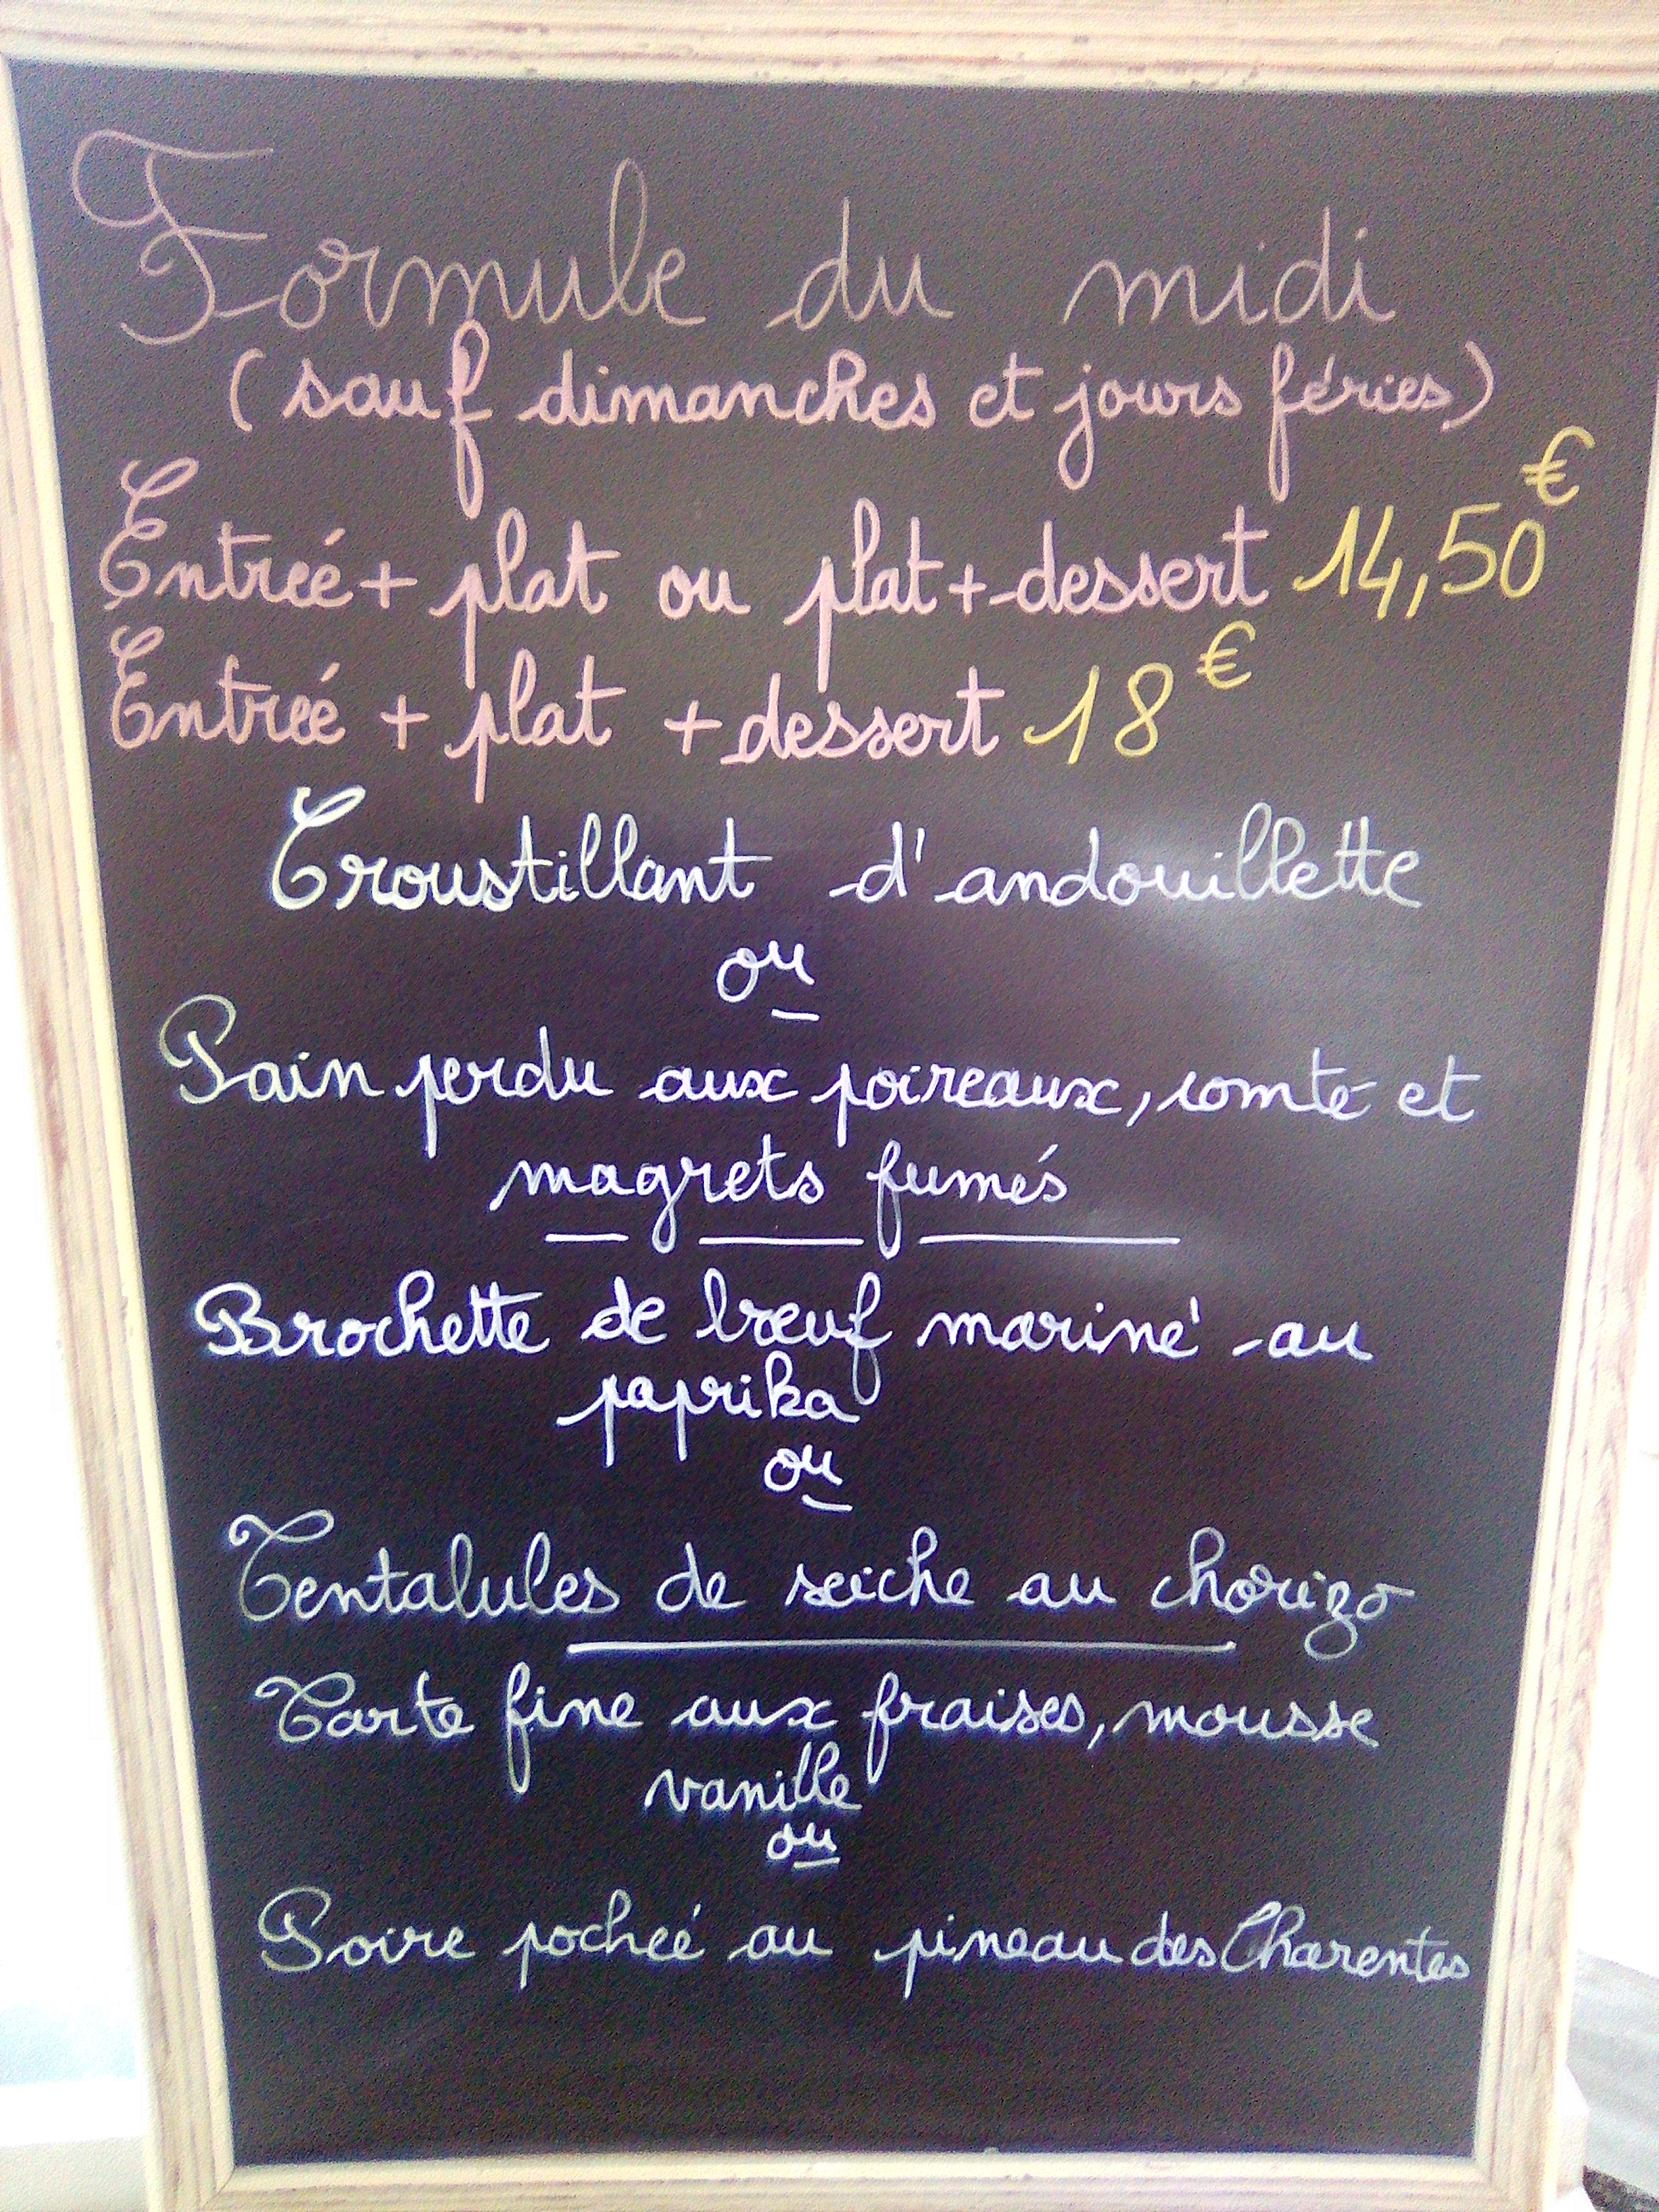 Formule du midi
(sauf dimanches et jours féries)
Entreé + plat ou plat + dessert 14,50€
Entreé + plat + dessert 18€
Croustillant d'andouillette
ou
Pain perdu aux poireaux, comté et
magrets fumés
Brochette de bœuf mariné au
paprika
ou
Tentalules de seiche au chorizo
Tarte fine aux fraises, mousse
vanille
ou
Poire pocheé au pineau des Charentes